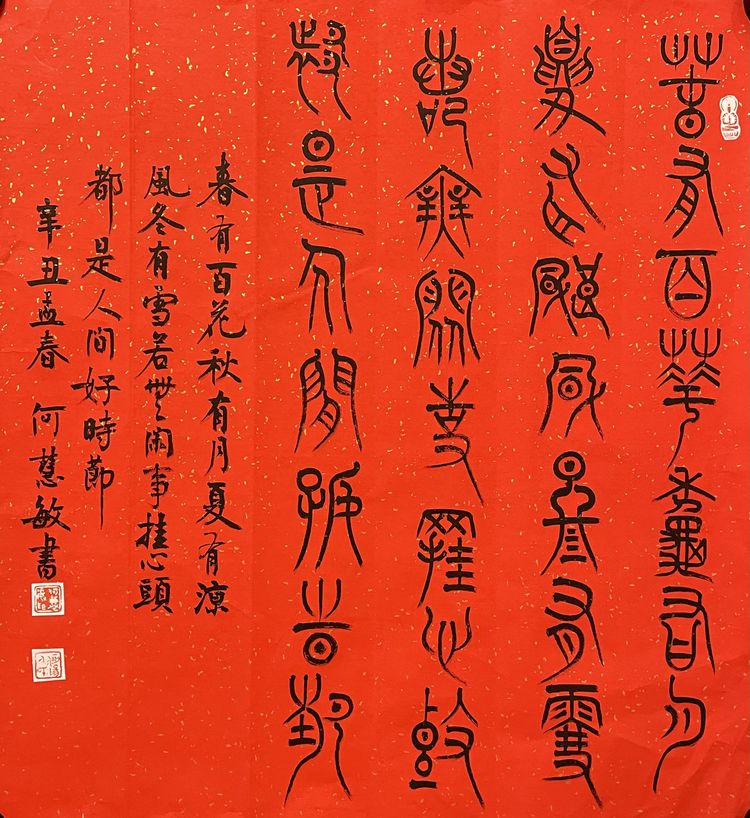 春有百華秋有月
夏有涼風冬有雪
若無閒事挂心頭
都是人間好時節
春有百花秋有月夏有涼
風冬有雪若無閑事挂心頭
都是人间好時節
辛丑孟春 何慧敏書